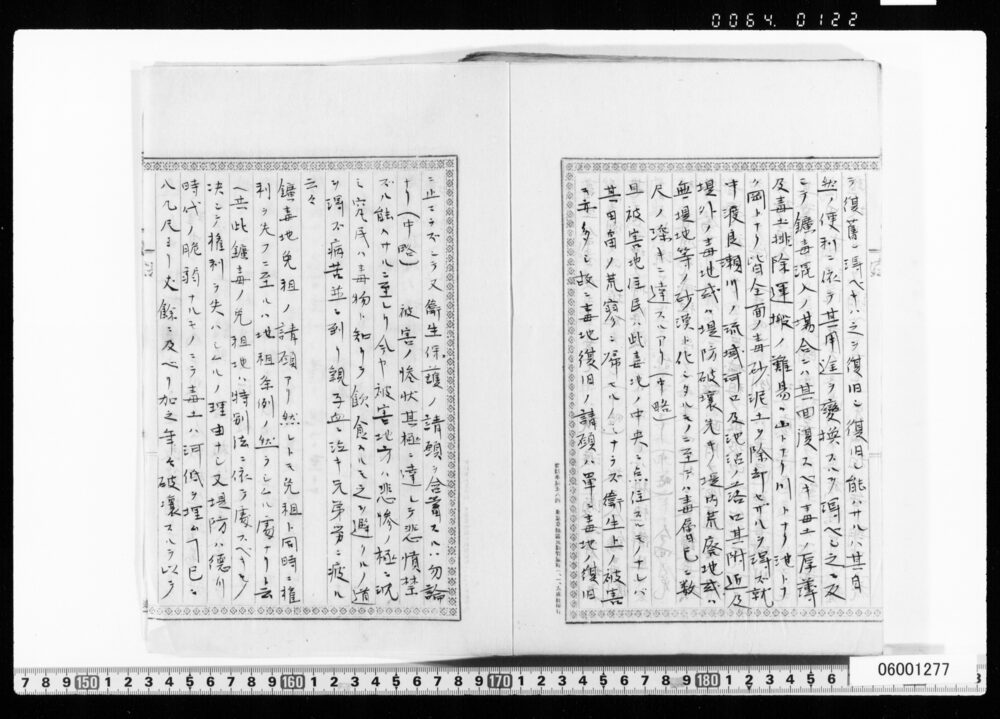 0064 0122
ラ復舊シ得ベキハ之ヲ復旧シ復旧シ能ハサルハ其自
然ノ便利ニ依テ其用途ヲ変換スルヲ得ベシ之ニ反
シテ鑛毒混入ノ場合ニハ其回復スベキ毒土ノ厚薄
及毒土排除運搬ノ難易ハ山トナリ川トナリ池トナ
リ岡トナリ皆全面ノ毒砂泥土ヲ除却セサルヲ得ズ就
中渡良瀬川ノ流域河口及池沼ノ落口其附近及
堤外ノ毒地或ハ堤防破壊先キノ堤内荒廃地或ハ
無堤地等ノ砂漠ト化シタルモノニ至テハ毒層已ニ数
尺ノ深キニ達スルアリ(中略)
且被害地住民ハ此毒地ノ中央ニ点住スルモノナレバ
其田畠ノ荒廃ニ帰セルノミナラズ衛生上ノ被害
モ亦多シ故ニ毒地復旧ノ請願ハ単ニ毒地ノ復旧
ニ止マラズシテ又衛生保護ノ請願ヲ含蓄スルハ勿論
ナリ(中略) 被害ノ惨状其極ニ達シテ悲憤禁
ズル能ハサルニ至レリ今ヤ被害地方ハ悲惨ノ極ニ沉
ミ窮民ハ毒物ト知リツヽ飲食スルモ之ヲ避クルノ道
ヲ得ズ病苦並ニ到リ親子血ニ泣キ兄弟労ニ疲ル
云々
鑛毒地免租ノ請願アリ然レトモ免租ト同時ニ権
利ヲ失フニ至ルハ地租条例ノ然ラシムル處ナリト云
ヘ共此鑛毒ノ免租地ハ特別法ニ依テ處スベキモノ
決シテ権利ヲ失ハシムルノ理由ナシ又堤防ハ德川
時代ノ脆弱ナルモノニテ毒土ハ河低ヲ埋ムヿ已ニ
八九尺ヨリ丈餘ニ及ベリ加之年々破壊スルヲ以テ
7 8 9 150 1 2 3 4 5 6 7 8 9 160 1 2 3 4 5 6 7 8 9 170 1 2 3 4 5 6 7 8 9 180 1 2 3 4 5 6
06001277